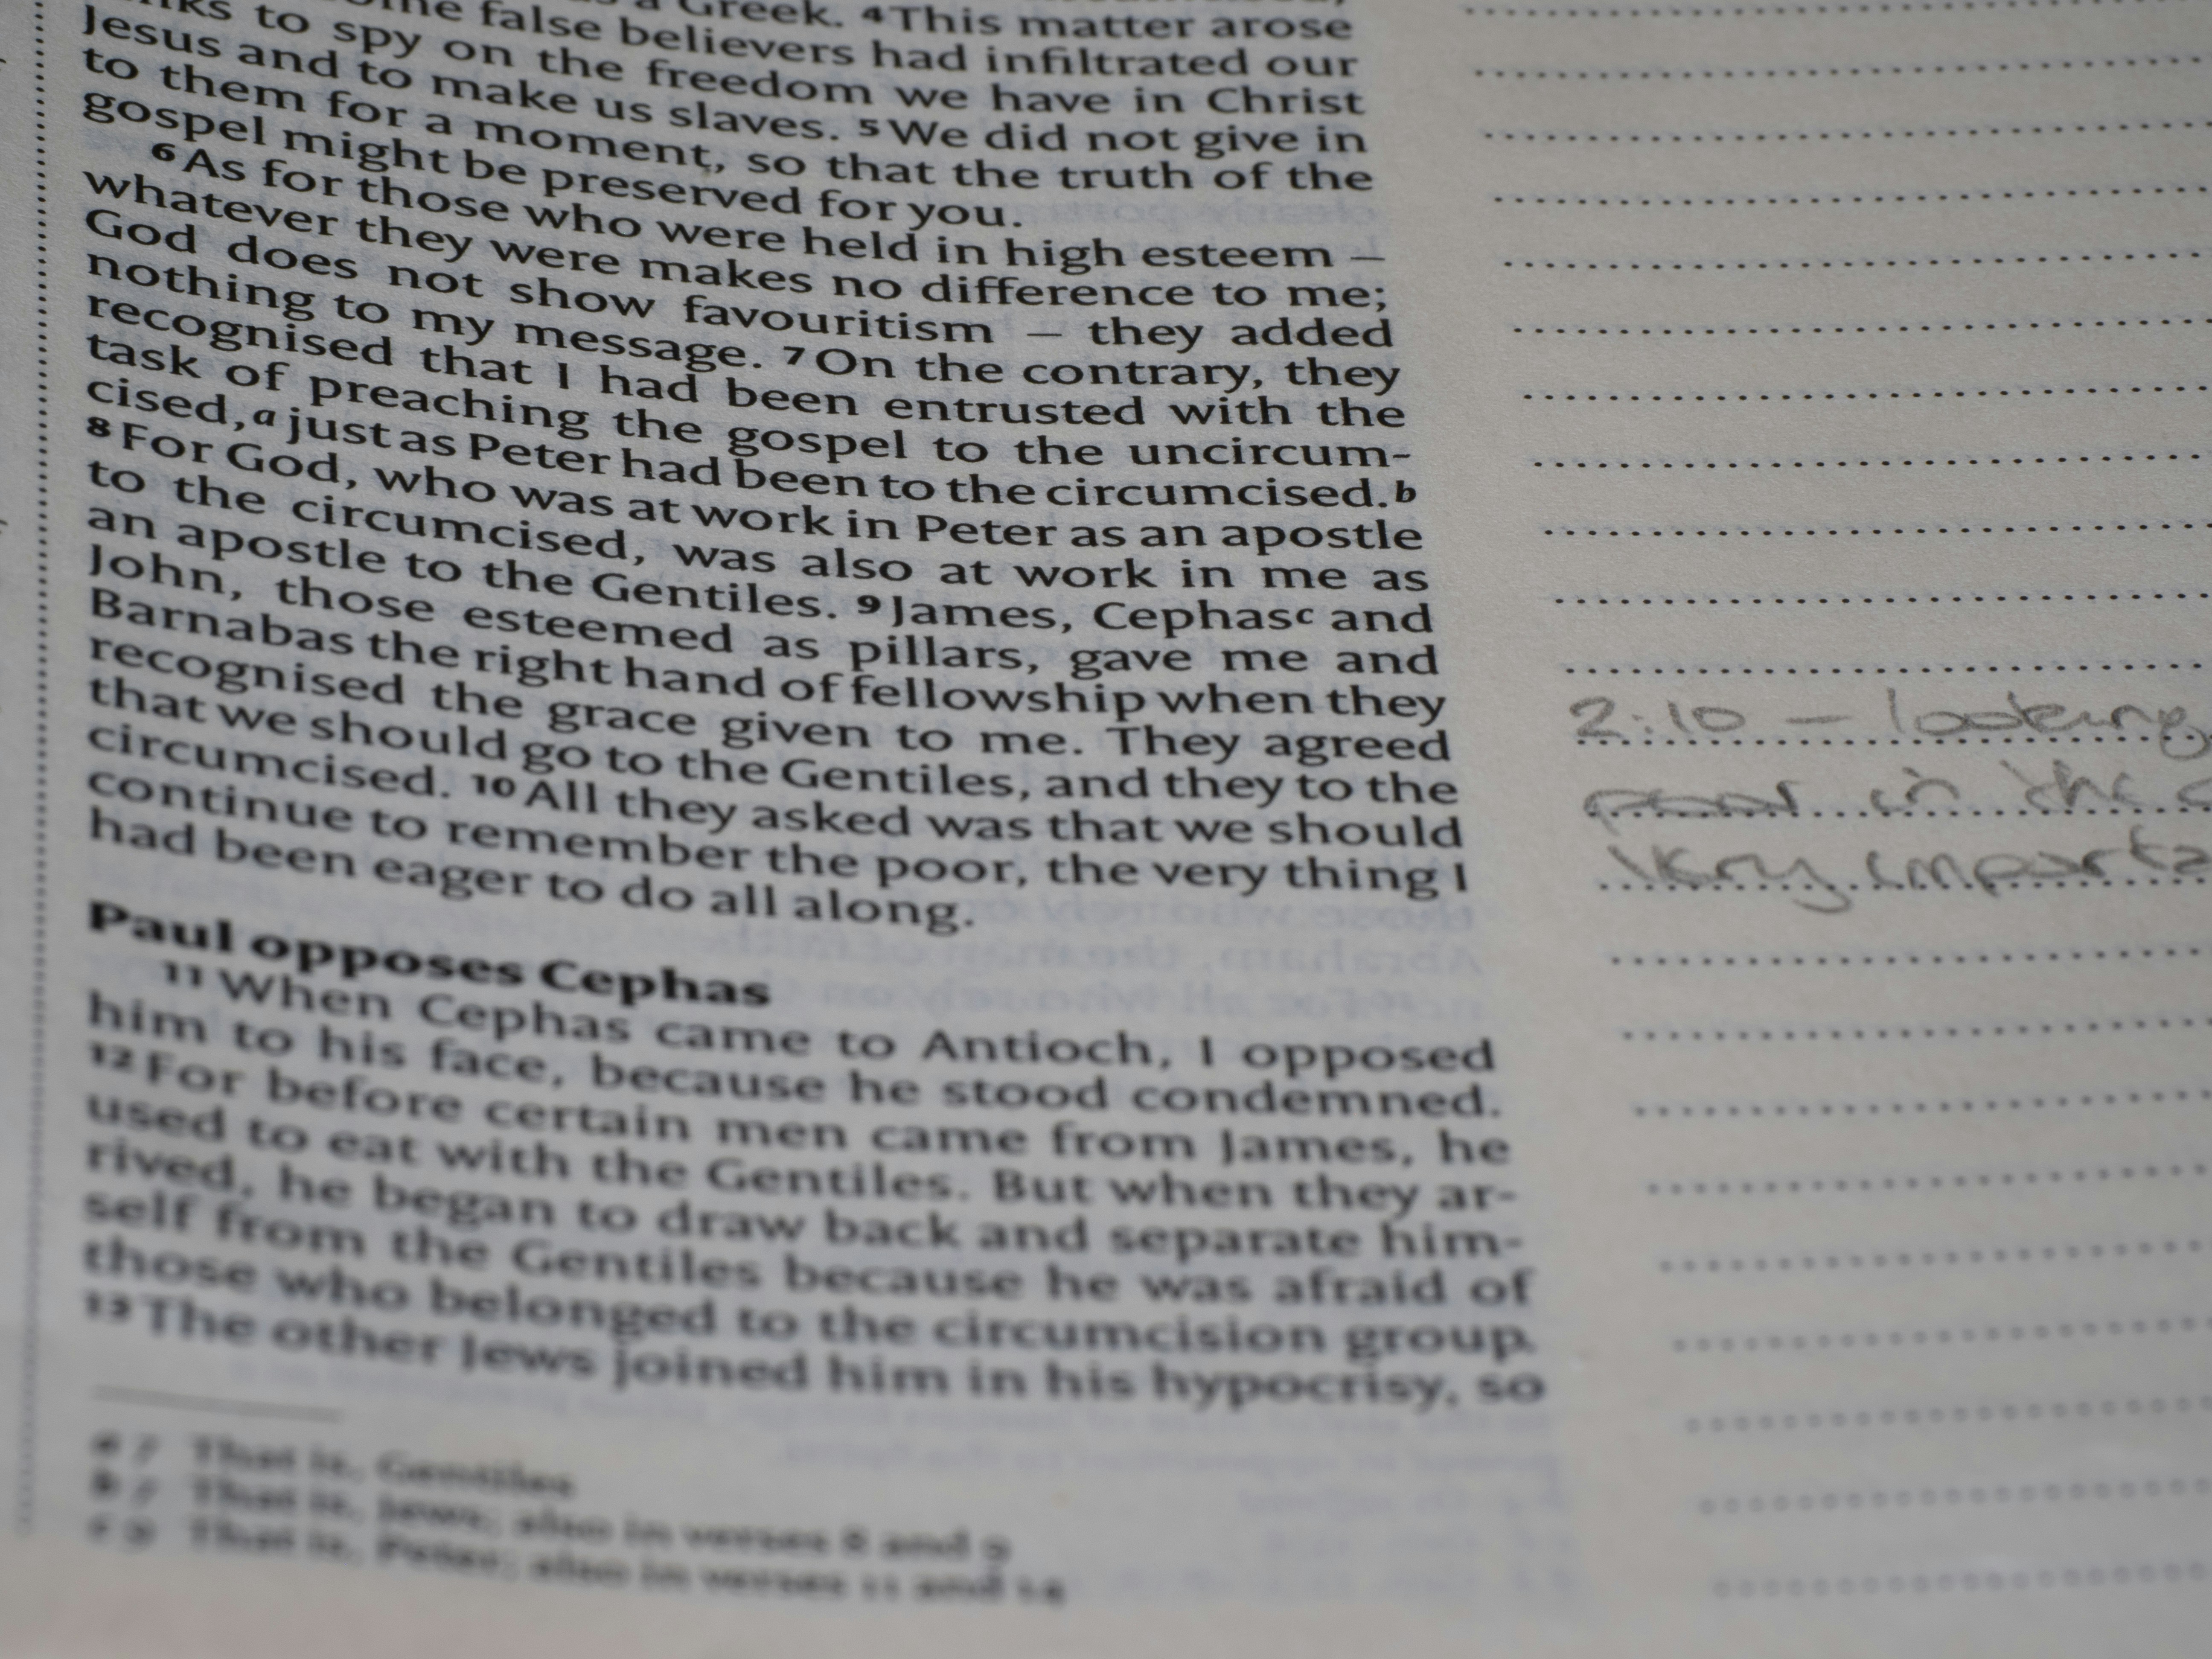 a Greek. 4 This matter arose
false believers had infiltrated our
to spy on the freedom we have in Christ
Jesus and to make us slaves. 5 We did not give in
to them for a moment, so that the truth of the
gospel might be preserved for you.
6 As for those who were held in high esteem –
whatever they were makes no difference to me;
God does not show favouritism – they added
nothing to my message. 7 On the contrary, they
recognised that I had been entrusted with the
task of preaching the gospel to the uncircum-
cised,a just as Peter had been to the circumcised.b
8 For God, who was at work in Peter as an apostle
to the circumcised, was also at work in me as
an apostle to the Gentiles. 9 James, Cephasc and
John, those esteemed as pillars, gave me and
Barnabas the right hand of fellowship when they
recognised the grace given to me. They agreed
that we should go to the Gentiles, and they to the
circumcised. 10 All they asked was that we should
continue to remember the poor, the very thing I
had been eager to do all along.
Paul opposes Cephas
11 When Cephas came to Antioch, I opposed
him to his face, because he stood condemned.
12 For before certain men came from James, he
used to eat with the Gentiles. But when they ar-
rived, he began to draw back and separate him-
self from the Gentiles because he was afraid of
those who belonged to the circumcision group.
13 The other Jews joined him in his hypocrisy, so
a 7 That is, Gentiles
b 7 That is, Jews; also in verses 8 and 9
c 9 That is, Peter; also in verses 11 and 14
2:10 – looking
poor in the
very importa